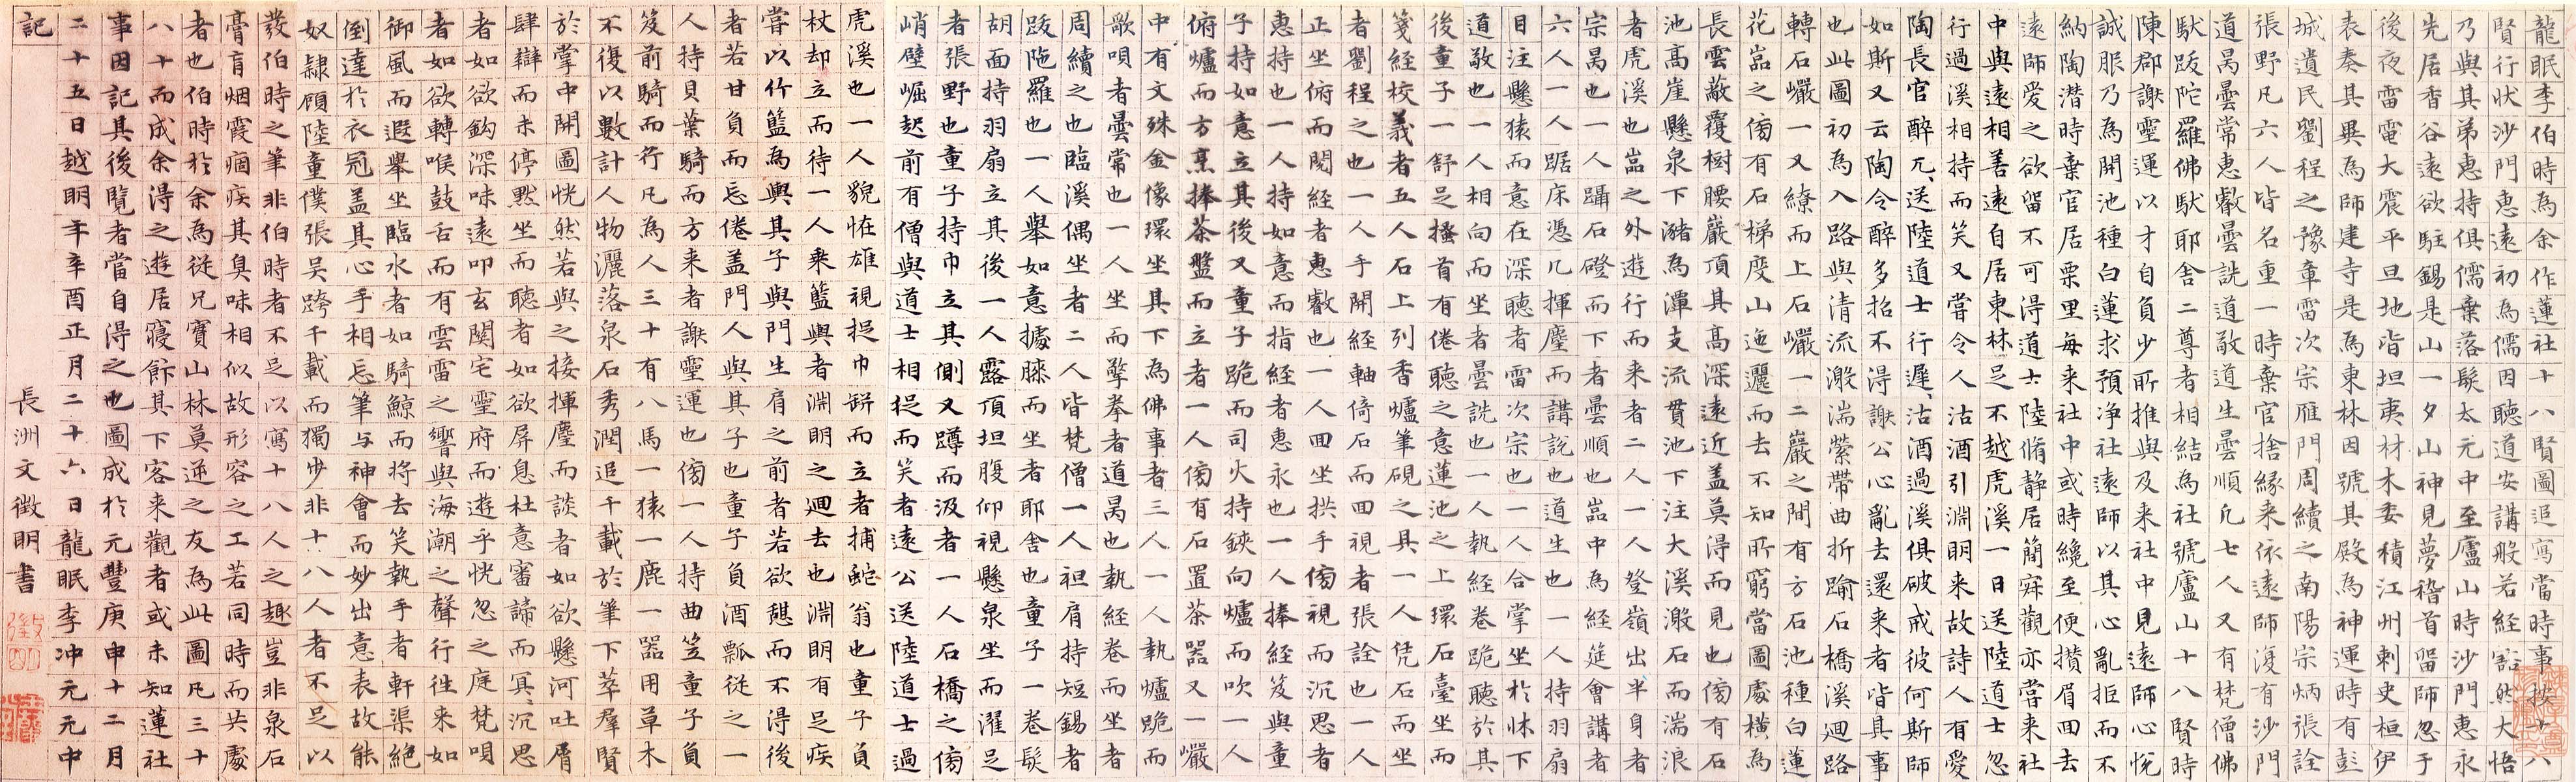 龍眠李伯時為余作蓮社十八賢圖追寫當時事按十八
賢行狀沙門惠遠初為儒因聽道安講般若經豁然大悟
乃與其弟惠持俱儒棄落髮太元中至廬山時沙門惠永
先居香谷遠欲駐錫是山一夕山神見夢稽首留師忽于
後夜雷電大震平旦地皆坦夷材木委積江州刺史桓伊
表奏其異為師建寺是為東林因號其殿為神運時有彭
城遺民劉程之豫章雷次宗雁門周續之南陽宗炳張詮
張野凡六人皆名重一時棄官捨緣来依遠師復有沙門
道昺曇常惠叡曇詵道敬道生曇順凢七人又有梵僧佛
馱跋陀羅佛馱耶舍二尊者相結為社號廬山十八賢時
陳郡謝靈運以才自負少所推與及来社中見遠師心悅
誠服乃為開池種白蓮求預净社遠師以其心亂拒而不
納陶潜時棄官居栗里每来社中或時纔至便攢眉回去
遠師愛之欲留不可得道士陸脩静居簡寂觀亦當来社
中與遠相善遠自居東林足不越虎溪一日送陸道士忽
行過溪相持而笑又嘗令人沽酒引淵明来故詩人有愛
陶長官醉兀〻送陸道士行遲〻沽酒過溪俱破戒彼何斯師
如斯又云陶令醉多招不得謝公心亂去還来者皆其事
也此圖初為入路與清流激湍縈帶曲折踰石橋溪迴路
轉石巖一又繚而上石巖一二巖之間有方石池種白蓮
花嵓之傍有石梯度山迤邐而去不知所窮當圖處橫為
長雲蔽覆樹腰巖頂其高深遠近盖莫得而見也傍有石
池高崖懸泉下瀦為潭支流貫池下注大溪激石而湍浪
者虎溪也嵓之外遊行而来者二人一人登嶺出半身者
宗昺也一人躡石磴而下者曇順也嵓中為經筵會講者
六人一人踞床憑几揮麈而講說也道生也一人持羽扇
目注懸猿而意在深聽者雷次宗也一人合掌坐於牀下
道敬也一人相向而坐者曇詵也一人執經卷跪聽於其
後童子一舒足搔首有倦聽之意蓮池之上環石臺坐而
箋經校義者五人石上列香爐筆硯之具一人凭石而坐
者劉程之也一人手開經軸倚石而回視者張詮也一人
正坐俯而閱經者惠叡也一人回坐拱手傍視而沉思者
惠持也一人持如意而指經者惠永也一人捧經笈與童
子持如意立其後又童子跪而司火持鋏向爐而吹一人
俯爐而方烹捧茶盤而立者一人傍有石置茶器又一巖
中有文殊金像環坐其下為佛事者三人一人執爐跪而
歌唄者曇常也一人坐而擎拳者道昺也執經卷而坐者
周續之也臨溪偶坐者二人皆梵僧一人袒肩持短錫者
跋陁羅也一人舉如意據膝而坐者耶舍也童子一卷髮
胡面持羽扇立其後一人露頂坦腹仰視懸泉坐而濯足
者張野也童子持巾立其側又蹲而汲者一人石橋之傍
峭壁崛起前有僧與道士相捉而笑者遠公送陸道士過
虎溪也一人貌恠雄視捉巾缾而立者捕蛇翁也童子負
杖却立而待一人乘籃輿者淵明之迴去也淵明有足疾
嘗以竹籃為輿其子與門生肩之前者若欲憇而不得後
者若甘負而忘倦盖門人與其子也童子負酒瓢從之一
人持貝葉騎而方来者謝靈運也傍一人持曲笠童子負
笈前騎而行凡為人三十有八馬一猿一鹿一器用草木
不復以數計人物灑落泉石秀潤追千載於筆下萃羣賢
於掌中開圖恍然若與之接揮麈而談者如欲懸河吐屑
肆辯而未停黙坐而聽者如欲屏息杜意審諦而冥沉思
者如欲鈎深味遠叩玄關宅靈府而遊乎恍忽之庭梵唄
者如欲轉喉鼓舌而有雲雷之響與海潮之聲行徃来如
御風而遐舉坐臨水者如騎鯨而将去笑執手者軒渠絕
倒達於衣冠盖其心手相忘筆与神會而妙出意表故能
奴隸顧陸童僕張吴跨千載而獨步非十八人者不足以
發伯時之筆非伯時者不足以寫十八人之趣豈非泉石
膏肓烟霞痼疾其臭味相似故形容之工若同時而共處
者也伯時於余為從兄實山林莫逆之友為此圖凡三十
八十而成余得之遊居寢飾其下客来觀者或未知蓮社
事因記其後覽者當自得之也圖成於元豐庚申十二月
二十五日越明年辛酉正月二十六日龍眠李冲元元中
記
長洲文徵明書